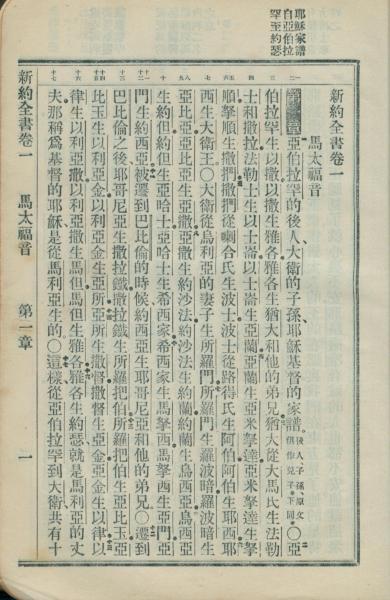 耶穌家譜
自亞伯拉
罕至約瑟
新約全書卷一
馬太福音
亞伯拉罕的後人大衛的子孫耶穌基督的家譜後人子孫原文俱作兒子下同○亞
伯拉罕生以撒以撒生雅各雅各生猶大和他的弟兄猶大從大馬氏生法勒
士和撒拉法勒士生以士崙以士崙生亞蘭亞蘭生亞米拏達亞米拏達生拏
順拏順生撒捫撒捫從喇合氏生波士波士從路得氏生阿伯阿伯生耶西耶
西生大衛王○大衛從烏利亞的妻子生所羅門所羅門生羅波暗羅波暗生
亞比亞亞比亞生亞撒亞撒生約沙法約沙法生約蘭約蘭生烏西亞烏西亞
生約但約但生亞哈士亞哈士生希西家希西家生馬拏西馬拏西生亞門亞
門生約西亞被遷到巴比倫的時候約西亞生耶哥尼亞和他的弟兄○遷到
巴比倫之後耶哥尼亞生撒拉鐵撒拉鐵生所羅把伯所羅把伯生亞比玉亞
比玉生以利亞金以利亞金生亞所亞所生撒督撒督生亞金亞金生以律以
律生以利亞撒以利亞撒生馬但馬但生雅各雅各生約瑟就是馬利亞的丈
夫那稱爲基督的耶穌是從馬利亞生的○這樣從亞伯拉罕到大衛共有十
新約全書卷一 馬太福音 第一章 一